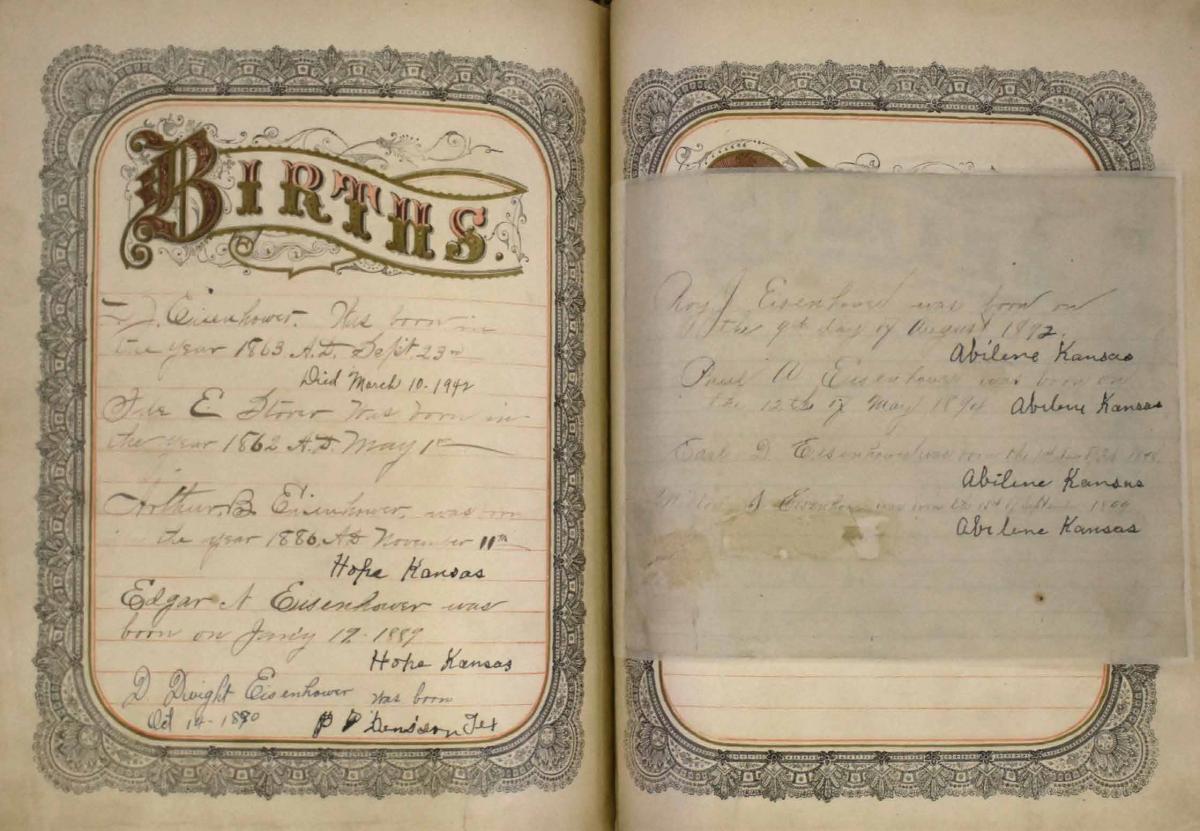 BIRTHS.
J. Eisenhower. Was born in
the year 1863 A.D. Sept 23rd
Died March 10-1942
Ida E Stover was born in
the year 1862 A.D. May 1st
Arthur. B. Eisenhower. was born
in the year 1886. A.D November 11th
Hope Kansas
Edgar N Eisenhower was
born on Jan'y 19-1889
Hope Kansas
D. Dwight Eisenhower was born
Oct 14-1890 Denison Tex
Roy J Eisenhower was born on
the 9th day of August 1892.
Abilene Kansas
Paul A Eisenhower was born on
the 12th of May 1894 Abilene Kansas
Earl D. Eisenhower was born the 1898
Abilene Kansas
Eisenhower was born the 15th of Sept 1899
Abilene Kansas